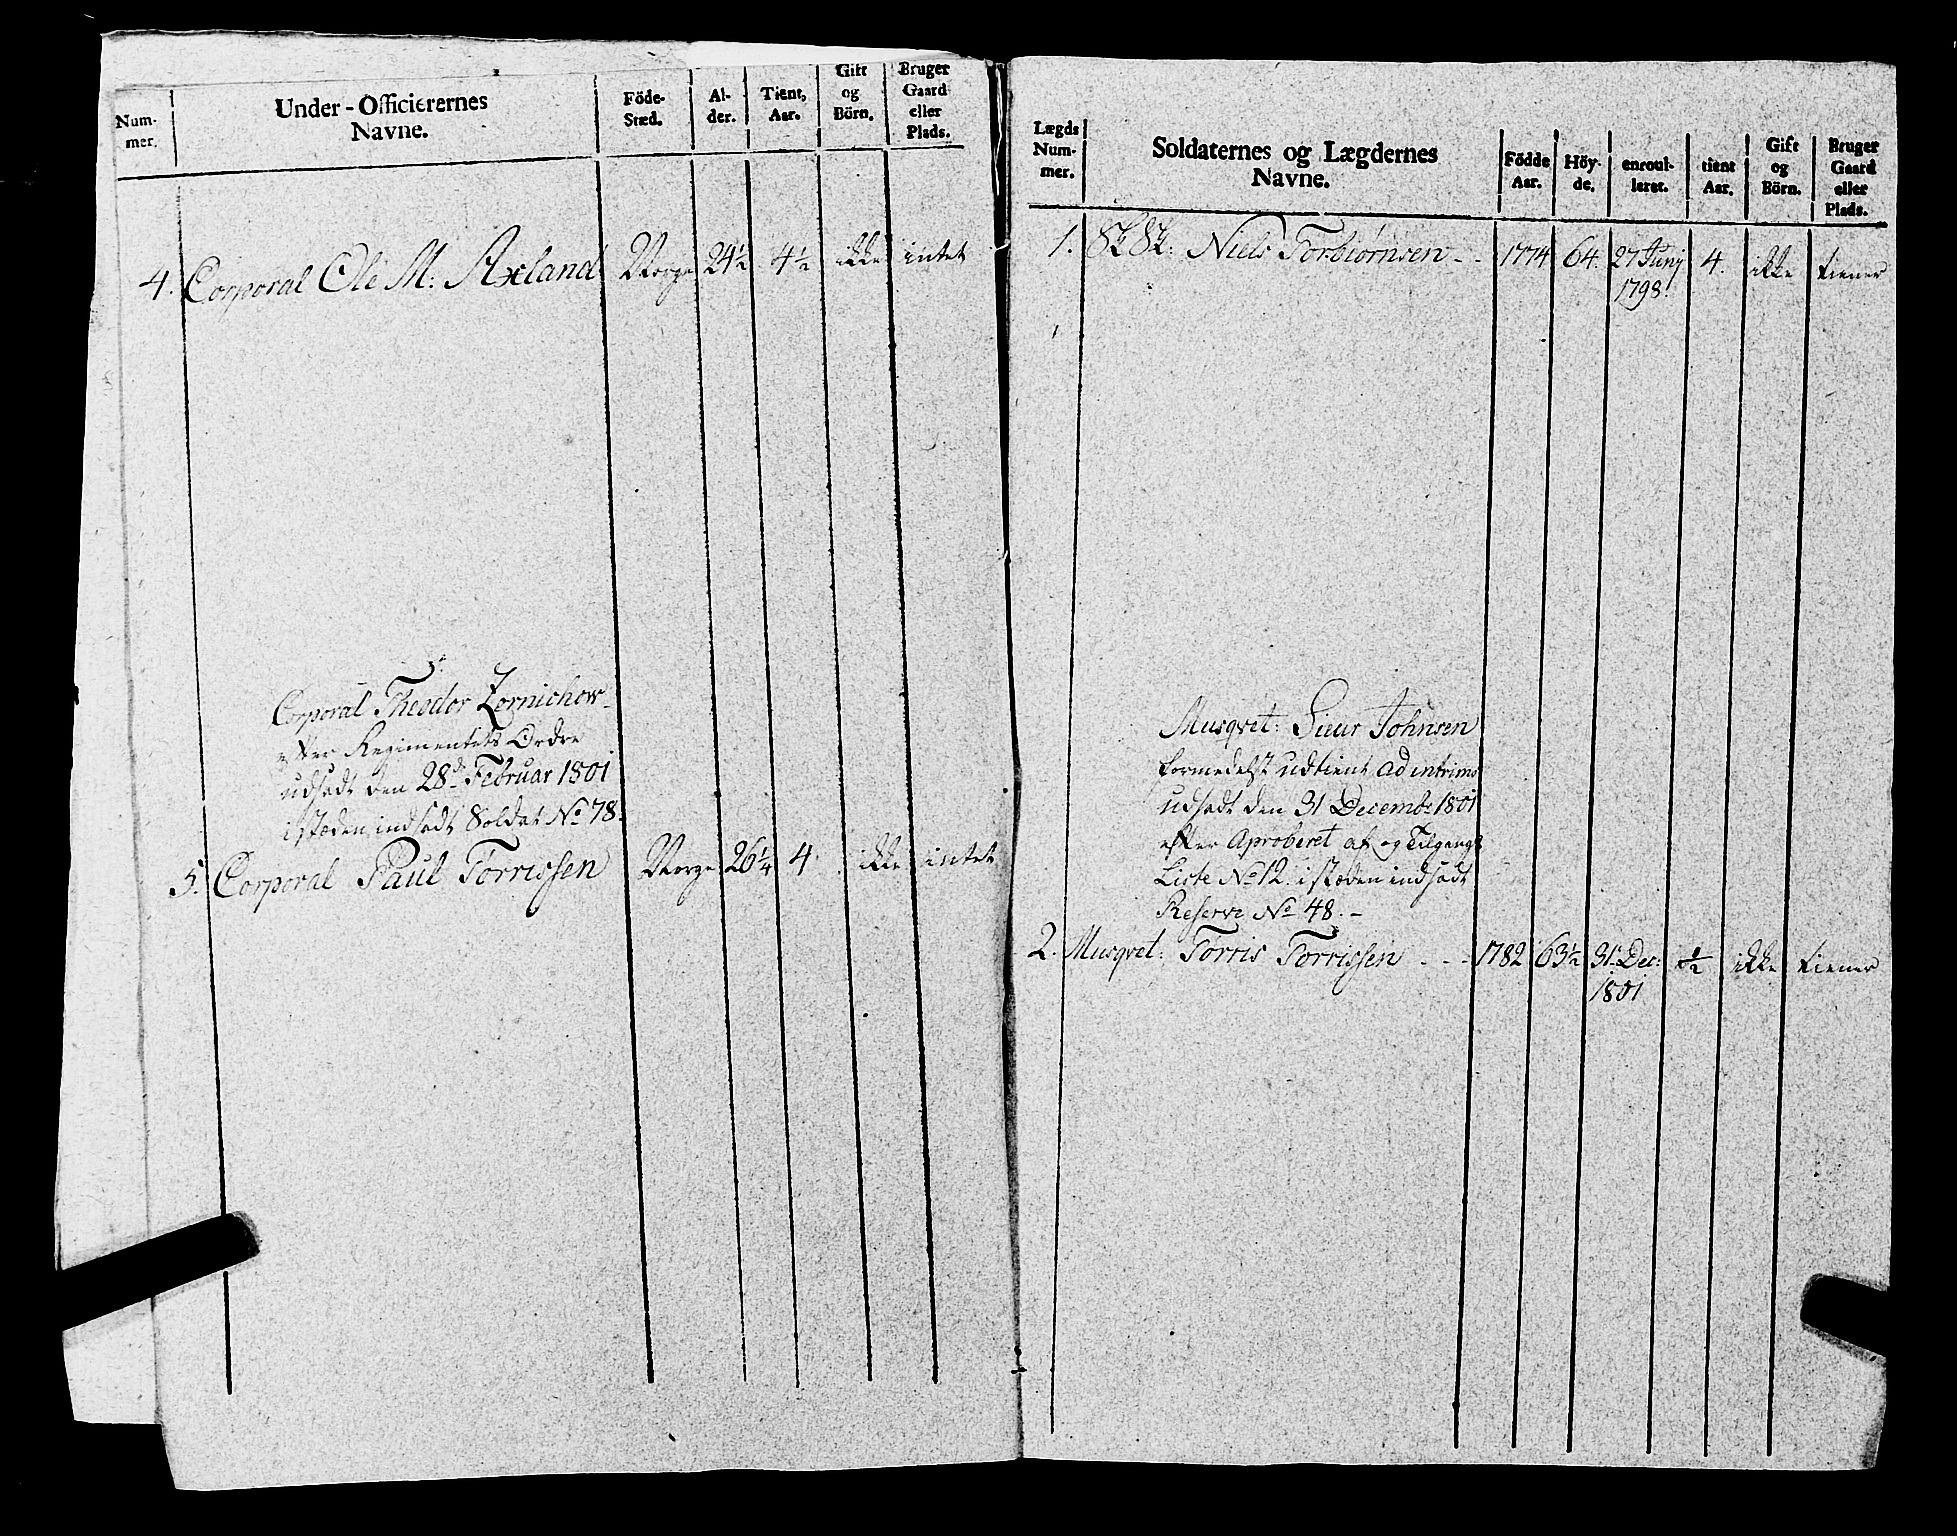 Num-
mer.
Under-Officierernes
Navne.
Föde-
Sted.
Al-
der.
Tient,
Aar.
Gift
og
Börn.
Bruger
Gaard
eller
Plads.
4. Corporal Ole M: Axland Norge 24½ 4½ ikke intet
5.
Corporal Theodor Zernichow
efter Regimentets Ordre
udsadt den 28d Februar 1801
i stæden indsadt Soldat No 78.
5. Corporal Paul Tørrissen Norge 26¼ 4 ikke intet
Lægds
Num-
mer.
Soldaternes og Lægdernes
Navne.
Födde
Aar.
Höy-
de.
enroul-
leret.
tient
Aar.
Gift
og
Börn.
Bruger
Gaard
eller
Plads.
1. Niels Torbiørnsen - - 1774 64. 27 Junj 4. ikke tiener
1798.
Musqvet: Siuur Johnsen
formedelst udtient ad intrims
udsadt den 31 Decembr 1801
efter Aproberet af og Tilgangs
Liste No 12. i stæden indsadt
Reserve No 48. -
2. Musqvet: Tørris Torrissen - - - 1782 63½ 31 Dec: ½ ikke tiener
1801